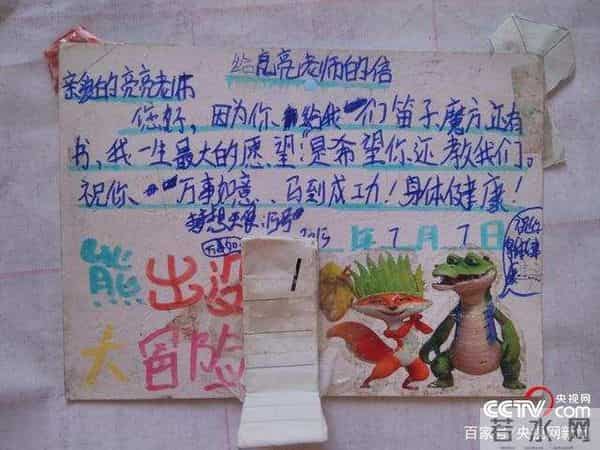 给亮亮老师的信
亲爱的亮亮老师
您好，因为你给我们笛子魔方还有
书，我一生最大的愿望是希望你还教我们。
祝你、万事如意、马到成功！身体健康！
2015年7月7日
熊出没
大冒险
1
CCTV.com 央视网
百家号/央视网新闻
若水网